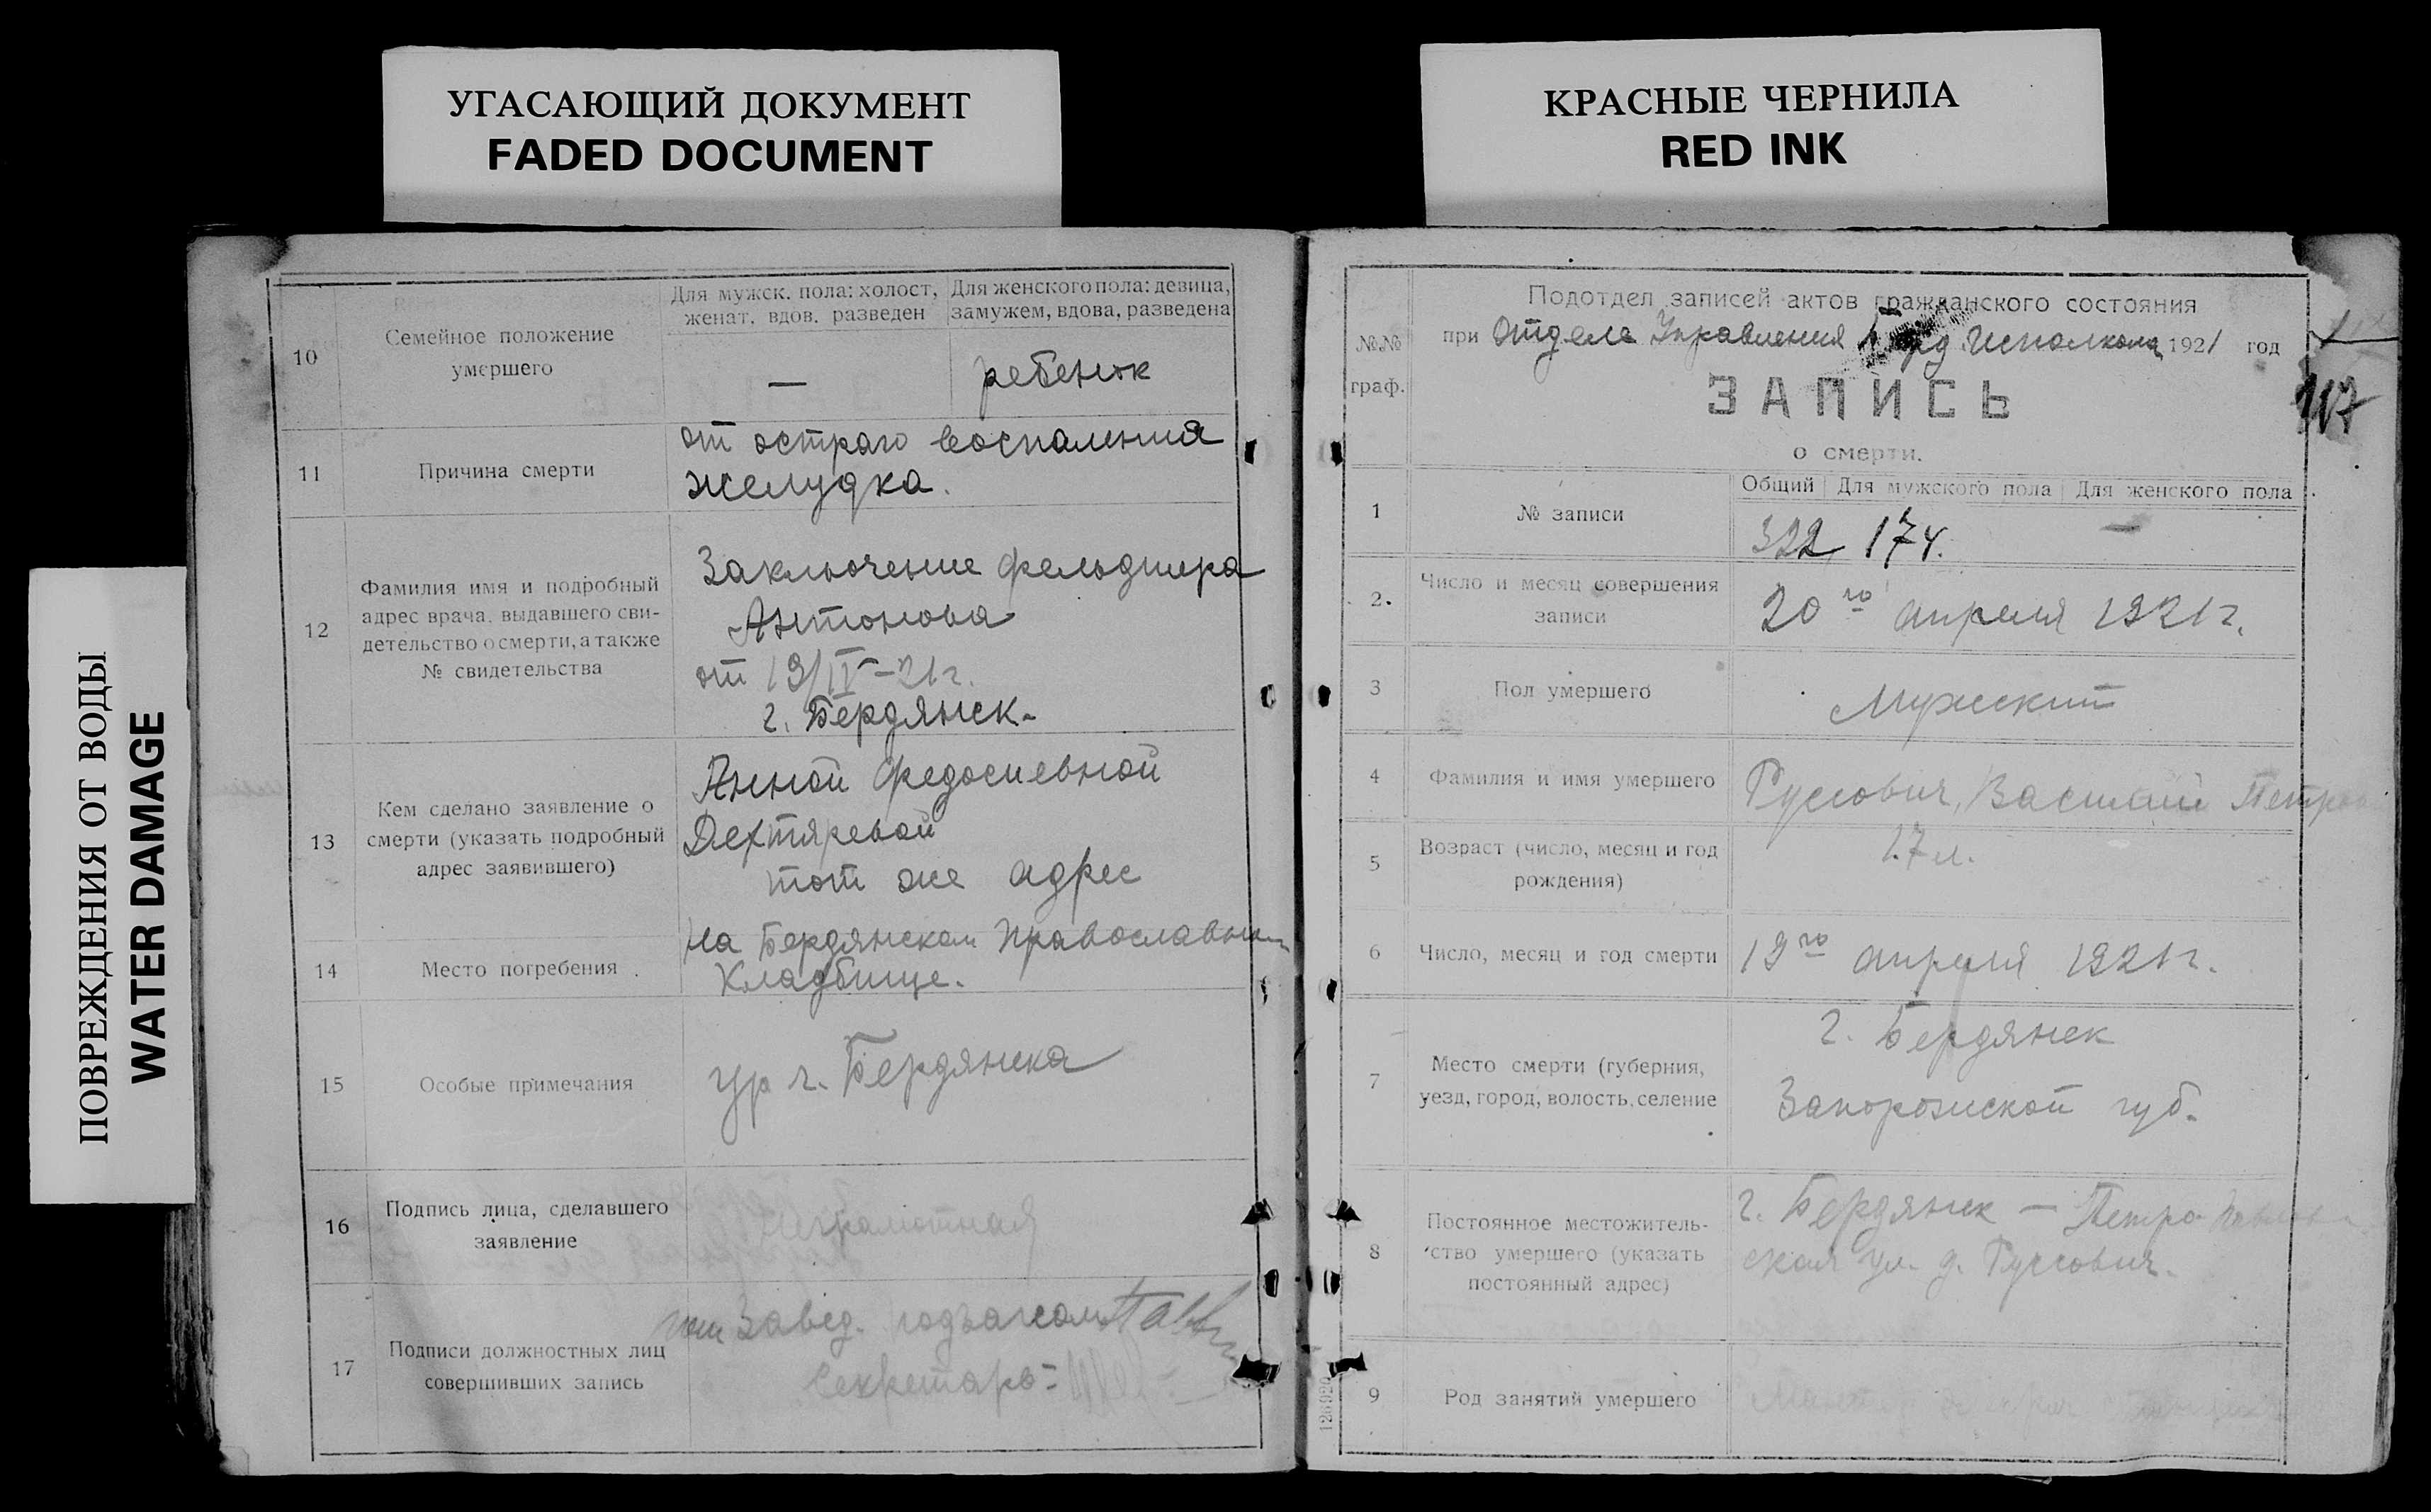 УГАСАЮЩИЙ ДОКУМЕНТ
FADED DOCUMENT
КРАСНЫЕ ЧЕРНИЛА
RED INK
ПОВРЕЖДЕНИЯ ОТ ВОДЫ
WATER DAMAGE
10
Семейное положение
умершего
Для мужск. пола: холост,
женат, вдов, разведен
Для женского пола: девица,
замужем, вдова, разведена
—
ребенок
11
Причина смерти
от остраго воспаления
желудка.
12
Фамилия имя и подробный
адрес врача, выдавшего сви-
детельство о смерти, а также
№ свидетельства
Заключение фельдшера
Антонова
от 19/IV-21 г.
г. Бердянск.
13
Кем сделано заявление о
смерти (указать подробный
адрес заявившего)
Анной Федосиевной
Дехтяревой
тот же адрес
14
Место погребения
на Бердянском Православном
Кладбище.
15
Особые примечания
ур г. Бердянска
16
Подпись лица, сделавшего
заявление
Неграмотная
17
Подписи должностных лиц
совершивших запись
Завед. подъагсом
Секретарь:
№№
граф.
Подотдел записей актов гражданского состояния
при Отделе Управления Исполкома 1921 год
ЗАПИСЬ
о смерти.
117
1
№ записи
Общий
Для мужского пола
Для женского пола
322
174.
—
2.
Число и месяц совершения
записи
20го апреля 1921 г.
3
Пол умершего
Мужский
4
Фамилия и имя умершего
Руссович, Василий
5
Возраст (число, месяц и год
рождения)
17 л.
6
Число, месяц и год смерти
19го апреля 1921 г.
7
Место смерти (губерния,
уезд, город, волость, селение
г. Бердянск
Запорожской губ.
8
Постоянное местожитель-
ство умершего (указать
постоянный адрес)
г. Бердянск — Петро Павлов
ская ул. д. Руссович.
9
Род занятий умершего